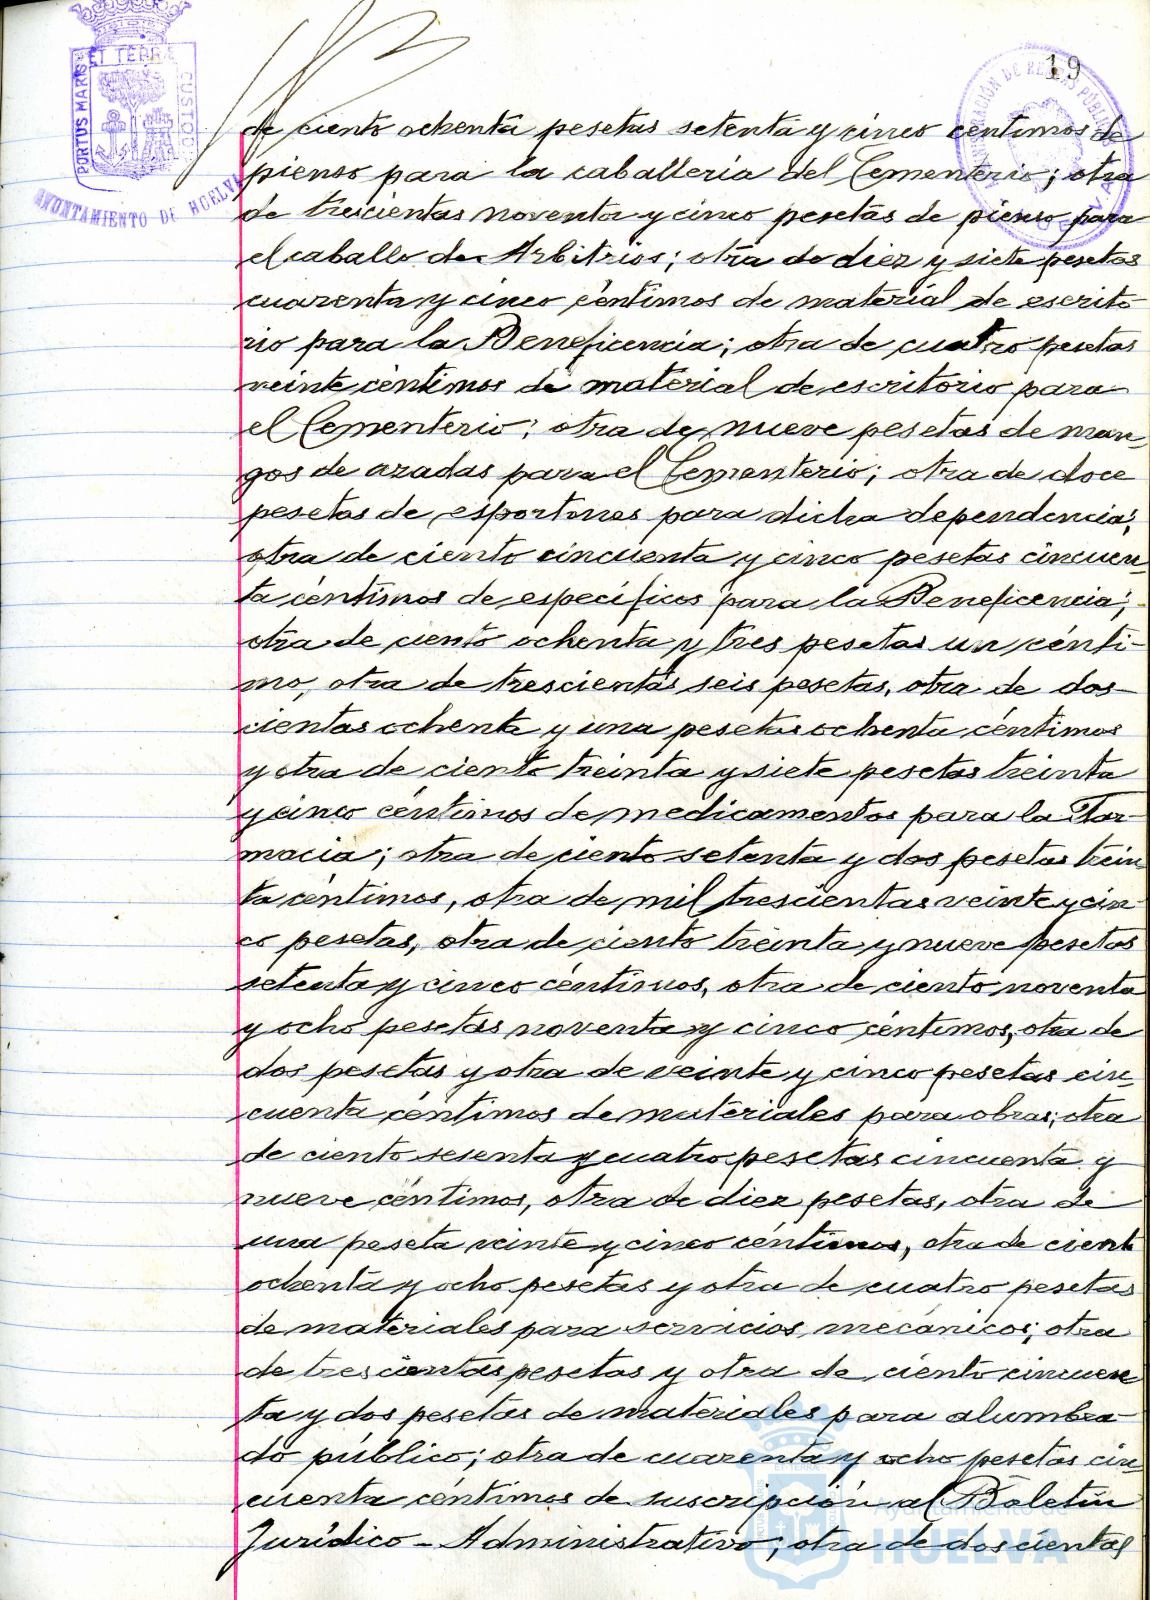 PORTUS MARIS ET TERRÆ CUSTODIA
AYUNTAMIENTO DE HUELVA
19
de ciento ochenta pesetas setenta y cinco centimos de
pienso para la caballeria del Cementerio; otra
de trescientas noventa y cinco pesetas de pienso para
el caballo de Arbitrios; otra de diez y siete pesetas
cuarenta y cinco céntimos de material de escrito-
rio para la Beneficencia; otra de cuatro pesetas
veinte céntimos de material de escritorio para
el Cementerio; otra de nueve pesetas de man-
gos de azadas para el Cementerio; otra de doce
pesetas de esportones para dicha dependencia;
otra de ciento cincuenta y cinco pesetas cincuen-
ta céntimos de específicos para la Beneficencia;
otra de ciento ochenta y tres pesetas un cénti-
mo, otra de trescientas seis pesetas, otra de dos-
cientas ochenta y una pesetas ochenta céntimos
y otra de ciento treinta y siete pesetas treinta
y cinco céntimos de medicamentos para la Far-
macia; otra de ciento setenta y dos pesetas trein
ta céntimos, otra de mil trescientas veinte y cin-
co pesetas, otra de ciento treinta y nueve pesetas
setenta y cinco céntimos, otra de ciento noventa
y ocho pesetas noventa y cinco céntimos, otra de
dos pesetas y otra de veinte y cinco pesetas cin-
cuenta céntimos de materiales para obras; otra
de ciento sesenta y cuatro pesetas cincuenta y
nueve céntimos, otra de diez pesetas, otra de
una peseta veinte y cinco céntimos, otra de ciento
ochenta y ocho pesetas y otra de cuatro pesetas
de materiales para servicios mecánicos; otra
de trescientas pesetas y otra de ciento cincuen
ta y dos pesetas de materiales para alumbra-
do público; otra de cuarenta y ocho pesetas cin-
cuenta céntimos de suscripción al Boletín
Jurídico - Administrativo; otra de doscientas
Ayuntamiento de
HUELVA